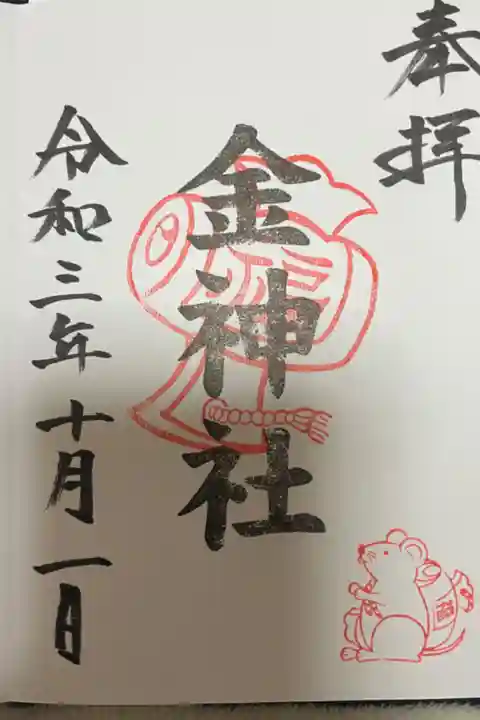 奉拝
金神社
令和三年十月一日